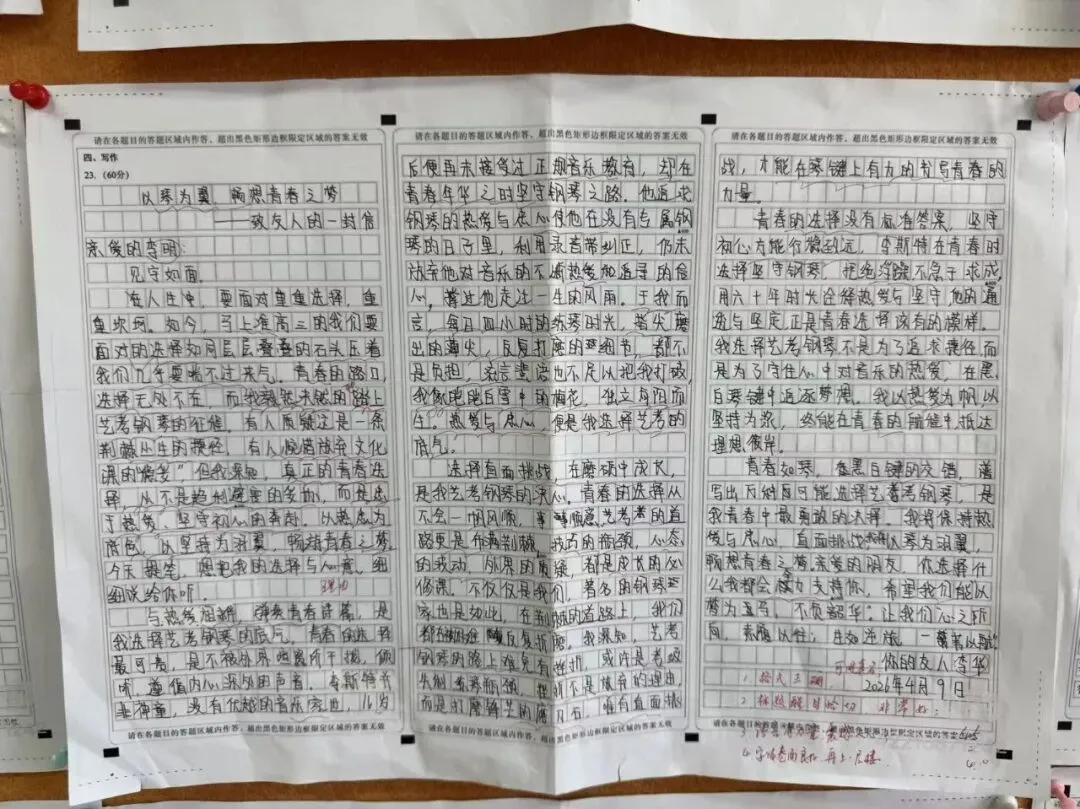 请在各题目的答题区域内作答，超出黑色矩形边框限定区域的答案无效
四、写作
23．（60分）
以琴为翼，畅想青春之梦
——致友人的一封信
亲爱的李明：
见字如面。
在人生中，要面对重重选择，重
重坎坷。如今，马上准高三的我们要
面对的选择如同层层叠叠的石头压着
我们几乎要喘不过来气。青春的路口，
选择无处不在，而我毅然决然的踏上
艺考钢琴的征程。有人质疑这是一条
荆棘丛生的捷径，有人
课的"，但我深知，真正的青春选
择，从不是趋利避害的，而是忠
于热爱、坚守初心的奔赴。以热忱为
底色，以坚持为羽翼，畅想青春之梦。
今天提笔，想把我的选择与心意，细
细说给你听。
与热爱相拥，弹奏青春诗篇，是
我选择艺考钢琴的底气。青春的选择
最可贵，是不被外界所干扰，倾
听、遵循内心深处的声音。李斯特
是神童，没有优越的音乐家世，16岁
请在各题目的答题区域内作答，超出黑色矩形边框限定区域的答案无效
请在各题目的答题区域内作答，超出黑色矩形边框限定区域的答案无效
后便再未接受过正规音乐教育，却在
青春年华之时坚守钢琴之路。他追求
钢琴的热爱与忠心使他在没有专属钢
琴的日子里，利用录音带纠正，仍未
放弃他对音乐的不断热爱和追寻的信
心，撑过他走过一生的风雨。于我而
言，每日四小时的练琴时光，指尖磨
出的薄茧，反复打磨的细节，都不
是负担，流言蜚语也不足以把我打败，
我像皑皑白雪中的梅花，独立向阳而
生。热爱与忠心，便是我选择艺考的
底气。
选择直面挑战，在磨砺中成长，
是我艺考钢琴的决心。青春的选择从
不会一帆风顺，艺考的道
路更是布满荆棘，技巧的瓶颈，心态
的波动，外界的质疑，都是成长的必
修课。不仅仅是我们，著名的钢琴
家也是如此，在荆棘的道路上，我们
反复折磨。我深知，艺考
钢琴的路上难免有挫折，或许是考级
失利，练琴瓶颈，挫折不是放弃的理由，
而是打磨锋芒的磨刀石，唯有直面挑
请在各题目的答题区域内作答，超出黑色矩形边框限定区域的答案无效
请在各题目的答题区域内作答，超出黑色矩形边框限定区域的答案无效
战，才能在琴键上有力的书写青春的
力量。
青春的选择没有标准答案，坚守
初心方能行稳致远，李斯特在青春时
选择坚守钢琴，拒绝浮躁不急于求成，
用六十年时光诠释热爱与坚守，他的
与坚定正是青春选择该有的模样。
我选择艺考钢琴不是为了追求捷径，而
是为了守住心中对音乐的热爱，在黑
白琴键中追逐梦想。我以热爱为帆以
坚持为桨，终能在青春的航程中抵达
理想彼岸。
青春如琴，在黑白键的交错，谱
写出万种可能选择艺考钢琴，是
我青春中最勇敢的决择。我将保持热
爱与忠心，直面挑战以琴为羽翼，
畅想青春之梦，亲爱的朋友，你选择什
么我都会支持你，希望我们能以
梦为马，不负韶华。让我们心之所
向，素履以往；生如逆旅，一苇以航。
你的友人李华
2026年4月9日
4．字体卷面良好，再上一层楼